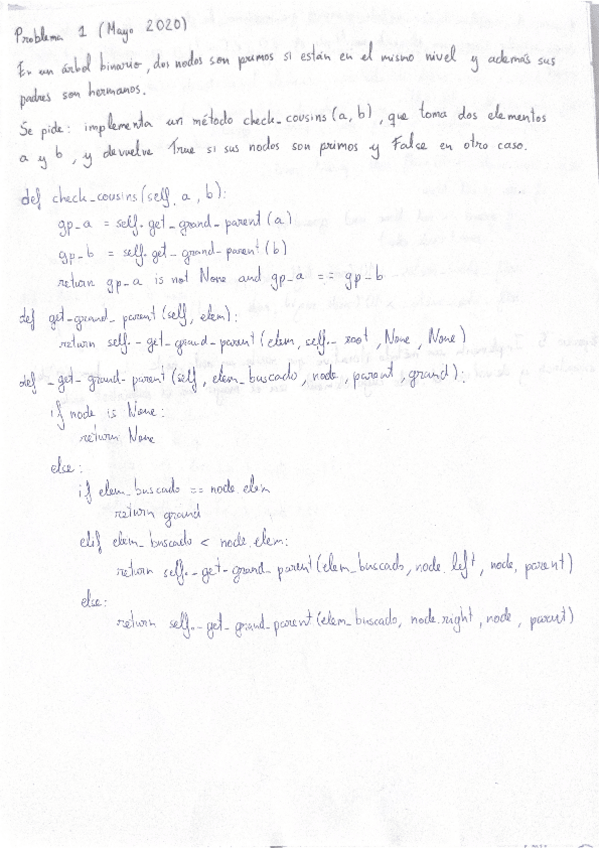 Problema 1 (Mayo 2020)
En un árbol binario, dos nodos son primos si están en el mismo nivel y además sus
padres son hermanos.
Se pide: implementa un método check_cousins(a, b), que toma dos elementos
a y b, y devuelve True si sus nodos son primos y False en otro caso.
def check_cousins(self, a, b):
gp_a = self.get_grand_parent(a)
gp_b = self.get_grand_parent(b)
return gp_a is not None and gp_a == gp_b
def get_grand_parent(self, elem):
return self._get_grand_parent(elem, self._root, None, None)
def _get_grand_parent(self, elem_buscado, node, parent, grand):
if node is None:
return None
else:
if elem_buscado == node.elem
return grand
elif elem_buscado < node.elem:
return self._get_grand_parent(elem_buscado, node.left, node, parent)
else:
return self._get_grand_parent(elem_buscado, node.right, node, parent)